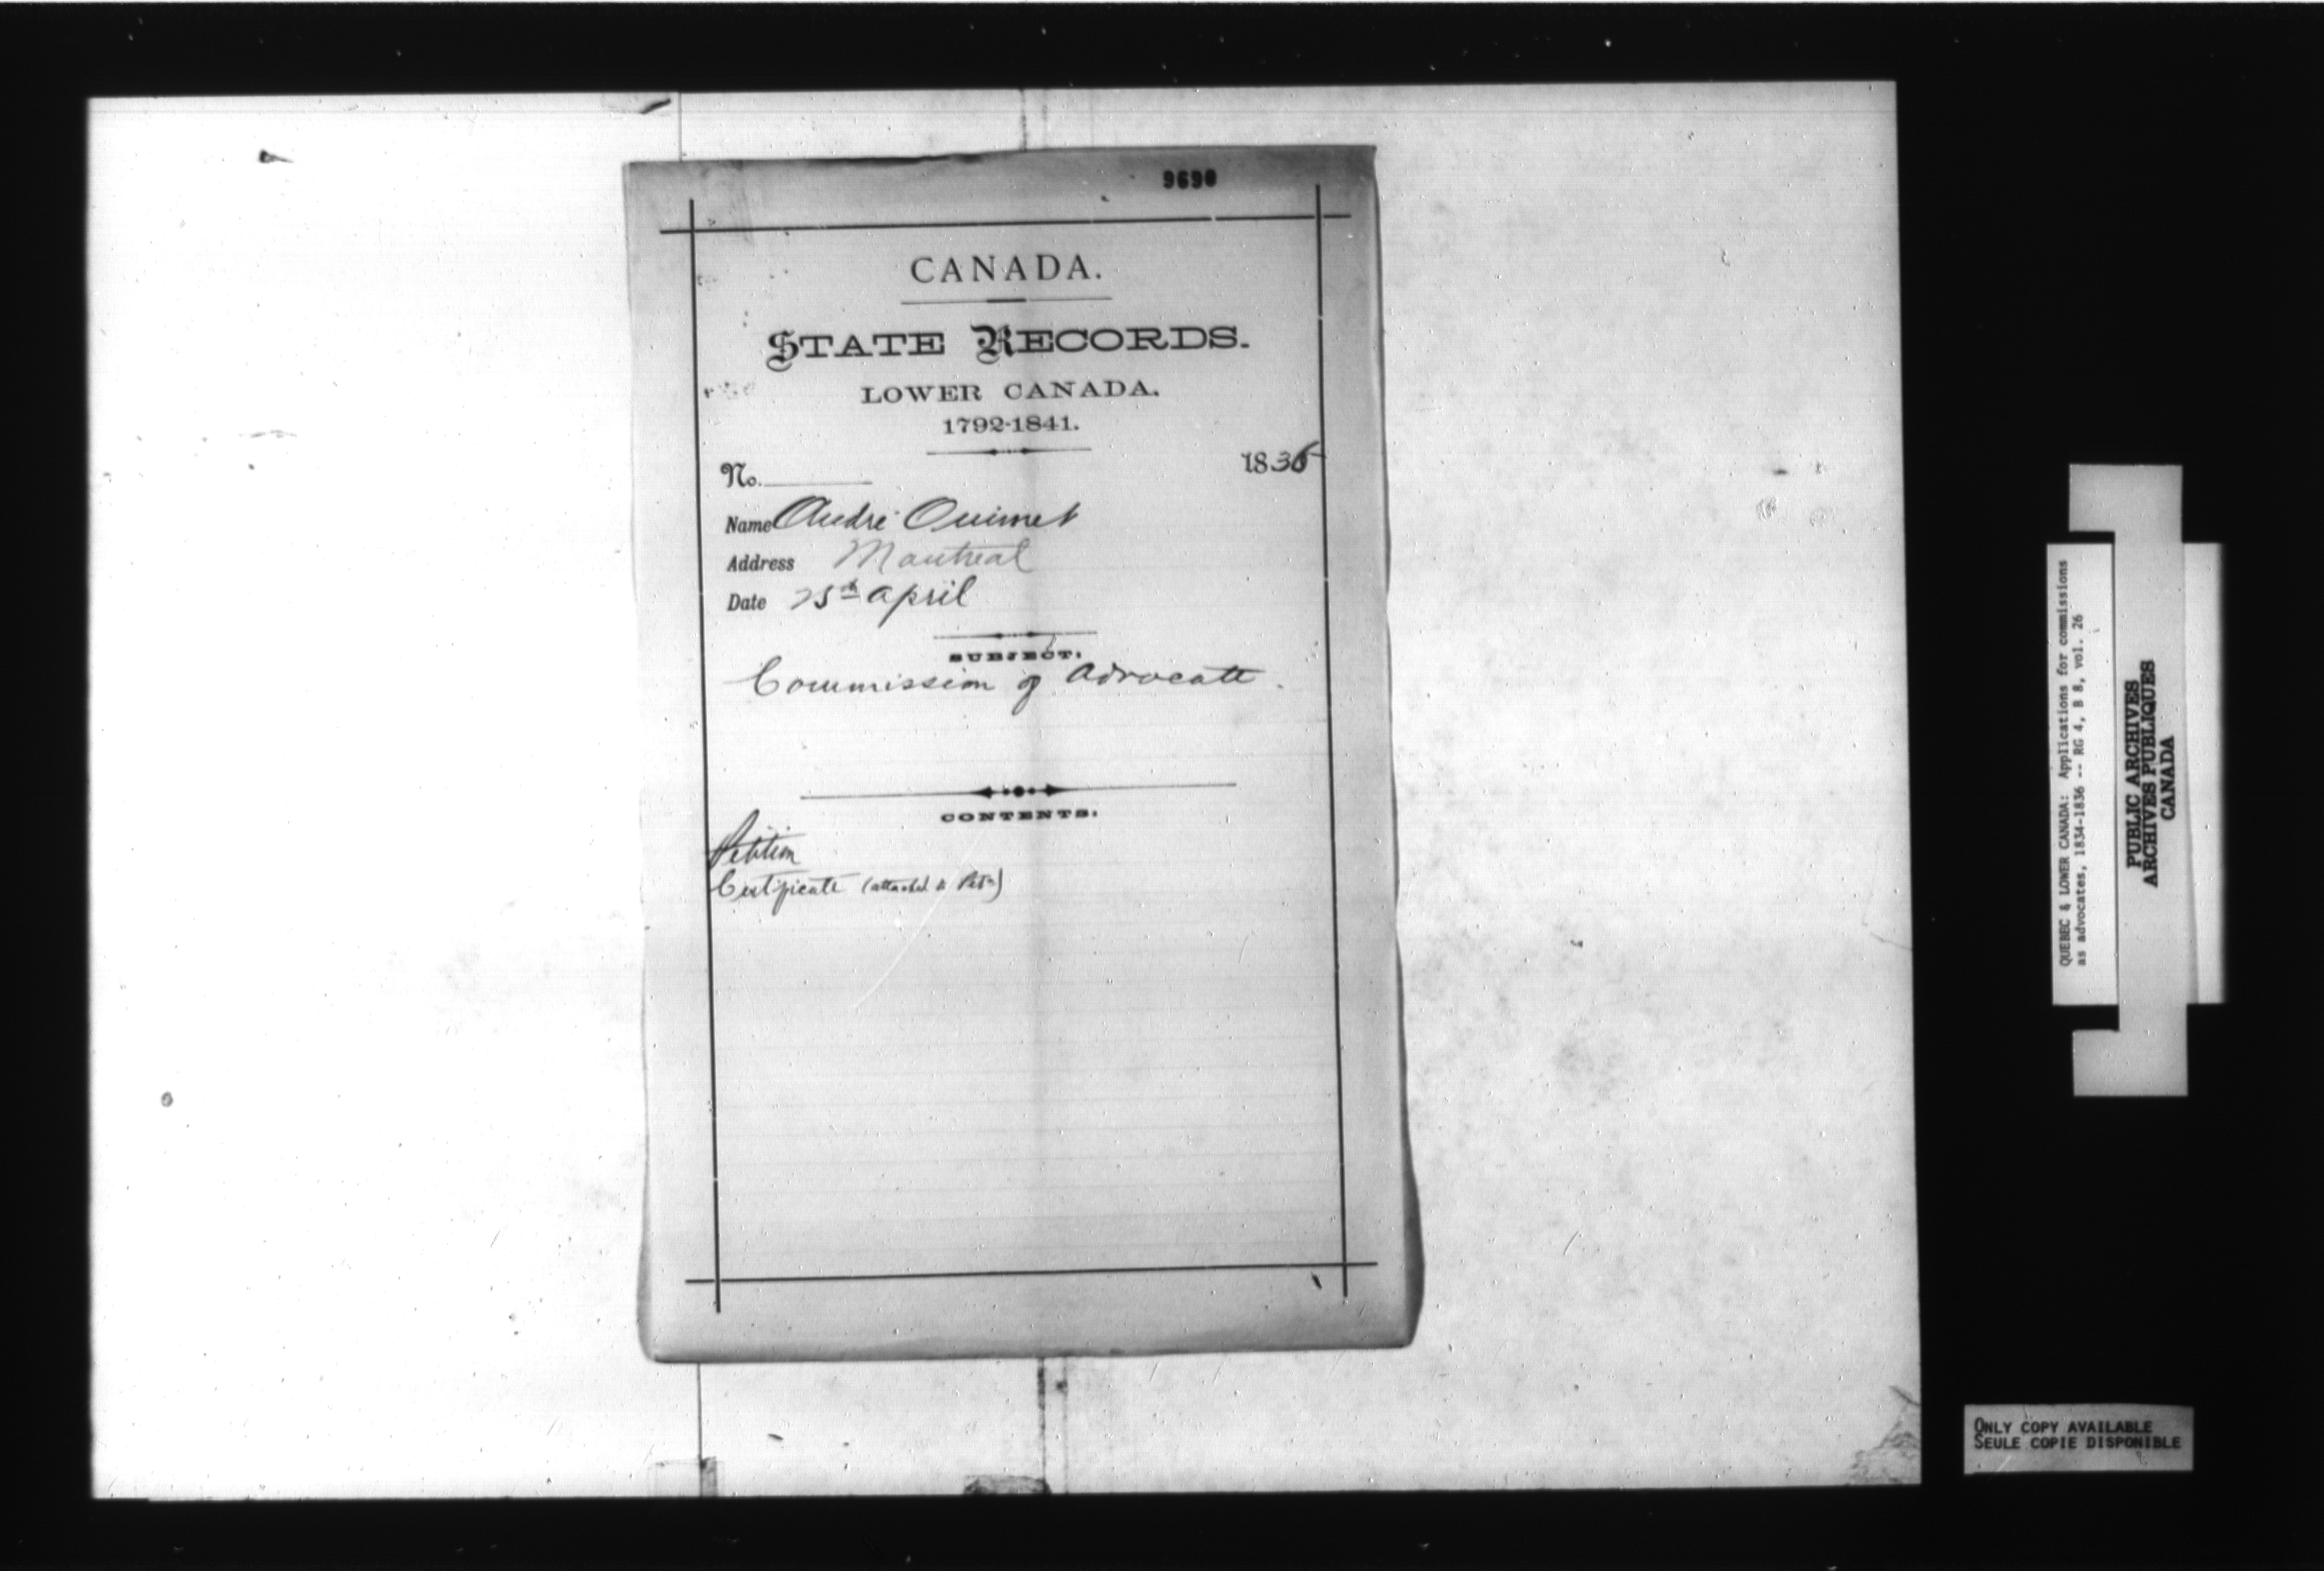 9690
CANADA.
STATE RECORDS.
LOWER CANADA.
1792-1841.
No. 1836
Name André Ouimet
Address Montreal
Date 25th April
SUBJECT.
Commission of Advocate.
CONTENTS.
Petition
Certificate (attached to Petn)
QUEBEC & LOWER CANADA: Applications for commissions
as advocates, 1834-1836 -- RG 4, B 8, vol. 26
PUBLIC ARCHIVES
ARCHIVES PUBLIQUES
CANADA
ONLY COPY AVAILABLE
SEULE COPIE DISPONIBLE